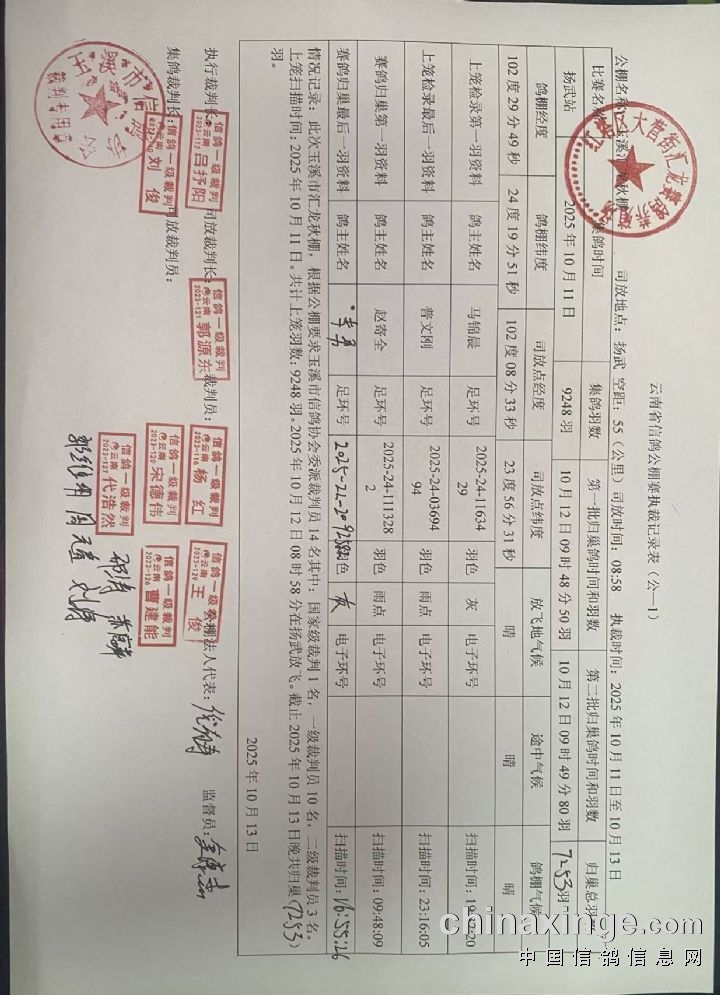 云南省信鸽公棚赛执裁记录表（公—1）
公棚名称：玉溪汇龙秋棚 司放地点：扬武 空距：55（公里）司放时间：08:58 执裁时间：2025年10月11日至10月13日
比赛名称 集鸽时间 集鸽羽数 第一批归巢鸽时间和羽数 第二批归巢鸽时间和羽数 归巢总羽
扬武站 2025年10月11日 9248羽 10月12日09时48分50羽 10月12日09时49分80羽 7253羽
鸽棚经度 鸽棚纬度 司放点经度 司放点纬度 放飞地气候 途中气候 鸽棚气候
102度29分49秒 24度19分51秒 102度08分33秒 23度56分31秒 晴 晴 晴
上笼检录第一羽资料 鸽主姓名 马锦晨 足环号 2025-24-1163429 羽色 灰 电子环号 扫描时间：
上笼检录最后一羽资料 鸽主姓名 普文刚 足环号 2025-24-0369494 羽色 雨点 电子环号 扫描时间：23:16:05
赛鸽归巢第一羽资料 鸽主姓名 赵寄全 足环号 2025-24-1113282 羽色 雨点 电子环号 扫描时间：09:48:09
赛鸽归巢最后一羽资料 鸽主姓名 李勇 足环号 羽色 灰 电子环号 扫描时间：16:55:26
情况记录：此次玉溪市汇龙秋棚，根据公棚要求玉溪市信鸽协会委派裁判员14名其中：国家级裁判1名，一级裁判员10名，二级裁判员3名。
上笼扫描时间：2025年10月11日。共计上笼羽数：9248羽。2025年10月12日08时58分在扬武放飞。截止2025年10月13日晚共归巢(7253)
羽。
2025年10月13日
执行裁判长： 司放裁判长： 裁判员： 公棚法人代表： 监督员：
信鸽一级裁判 云南 吕抒阳
信鸽一级裁判 云南 2023-121 郭源东
信鸽一级裁判 云南 2023-116 杨红
信鸽一级裁判 云南 王俊
集鸽裁判长： 司放裁判员：
信鸽一级裁判 云南 刘俊
信鸽一级裁判 云南 2023-129 宋德伟
信鸽一级裁判 云南 2023-126 曹建能
信鸽一级裁判 云南 2023-127 代浩然
玉溪市信鸽协会
裁判专用章
chinaxinge.com
中国信鸽信息网